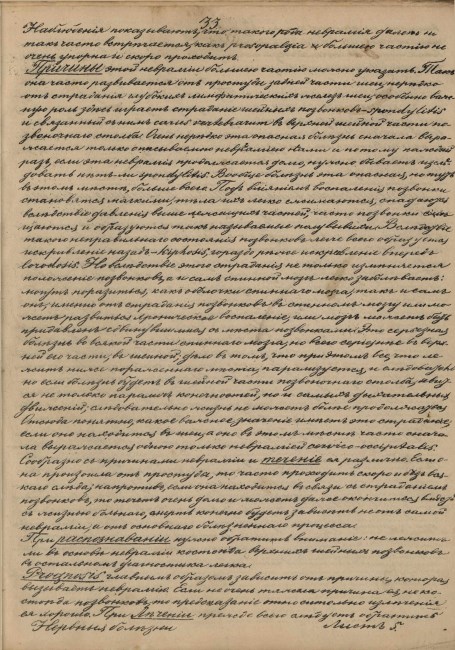 33
Наблюденія показываютъ, что такого рода невралгія далеко не
такъ часто встрѣчается, какъ prosopalgia и большею частію не
очень упорна и скоро проходитъ.
Причины этой невралгіи большею частію можно указать. Такъ
она часто развивается отъ простуды задней части шеи, нерѣдко
отъ страданія глубокихъ лимфатическихъ железъ шеи; особенно важ-
ную роль здѣсь играетъ страданіе шейныхъ позвонковъ — spondylitis
и связанный съ нимъ caries vertebrarum въ верхней шейной части по-
звоночнаго столба. Очень нерѣдко эта опасная болѣзнь сначала выра-
жается только описываемою невралгіею и потому каждый
разъ, если эта невралгія продолжается долго, нужно бываетъ изслѣ-
довать нѣтъ ли spondylitis. Вообще болѣзнь эта опасная, но тутъ
въ этомъ мѣстѣ, болѣе всего. Подъ вліяніемъ воспаленія позвонки
становятся мягкими, тѣла ихъ легко сжимаются, спадаются
вслѣдствіе давленія выше лежащихъ частей, часто позвонки смѣ-
щаются и образуются такъ называемые полувывихи. Вслѣдствіе
такого неправильнаго состоянія позвонковъ легче всего образуется
искривленіе назадъ — kyphosis, гораздо рѣже искривленіе впередъ —
lordosis. Но вслѣдствіе этого страданія не только измѣняется
положеніе позвонковъ, а и самъ спинной мозгъ легко заболѣваетъ:
могутъ поразиться, какъ оболочки спинного мозга, такъ и самъ
онъ; именно отъ страданія позвонковъ въ спинномъ мозгу мо-
жетъ развиться хроническое воспаленіе, или мозгъ можетъ быть
придавленъ сдвинувшимися съ мѣста позвонками. Это серьезная
болѣзнь во всякой части спинного мозга, но всего серьезнѣе въ верх-
ней его части, въ шейной; дѣло въ томъ, что при этомъ все, что ле-
житъ ниже пораженнаго мѣста, парализуется, и слѣдовател-
но если болѣзнь будетъ въ шейной части позвоночнаго столба, явит-
ся не только параличъ конечностей, но и самыхъ дыхательныхъ
движеній, слѣдовательно жизнь не можетъ болѣе продолжаться.
Отсюда понятно, какое важное значеніе имѣетъ это страданіе,
если оно находится въ шеѣ, а оно въ этомъ мѣстѣ часто снача-
ла выражается одною только невралгіей cervico-occipitalis.
Сообразно съ причинами невралгіи и теченіе ея различно. Если о-
на произошла отъ простуды, то часто проходитъ скоро и безъ вся-
каго слѣда; напротивъ, если она находится въ связи съ страданіемъ
позвонковъ, то течетъ очень долго и можетъ даже окончиться вмѣстѣ
съ жизнью больного; смерть конечно будетъ зависѣть не отъ самой
невралгіи, а отъ основнаго болѣзненнаго процесса.
При распознаваніи нужно обратить вниманіе: не лежитъ
ли въ основѣ невралгіи костоѣда верхнихъ шейныхъ позвонковъ
въ остальномъ діагностика легка.
Prognosis главнымъ образомъ зависитъ отъ причины, которая
вызываетъ невралгію. Если не очень тяжкая причина и не ко-
стоѣда позвонковъ, то предсказаніе относительно излѣченія
ея хорошо. При Лѣченіи прежде всего слѣдуетъ обратить
Нервныя болѣзни Листъ 5.